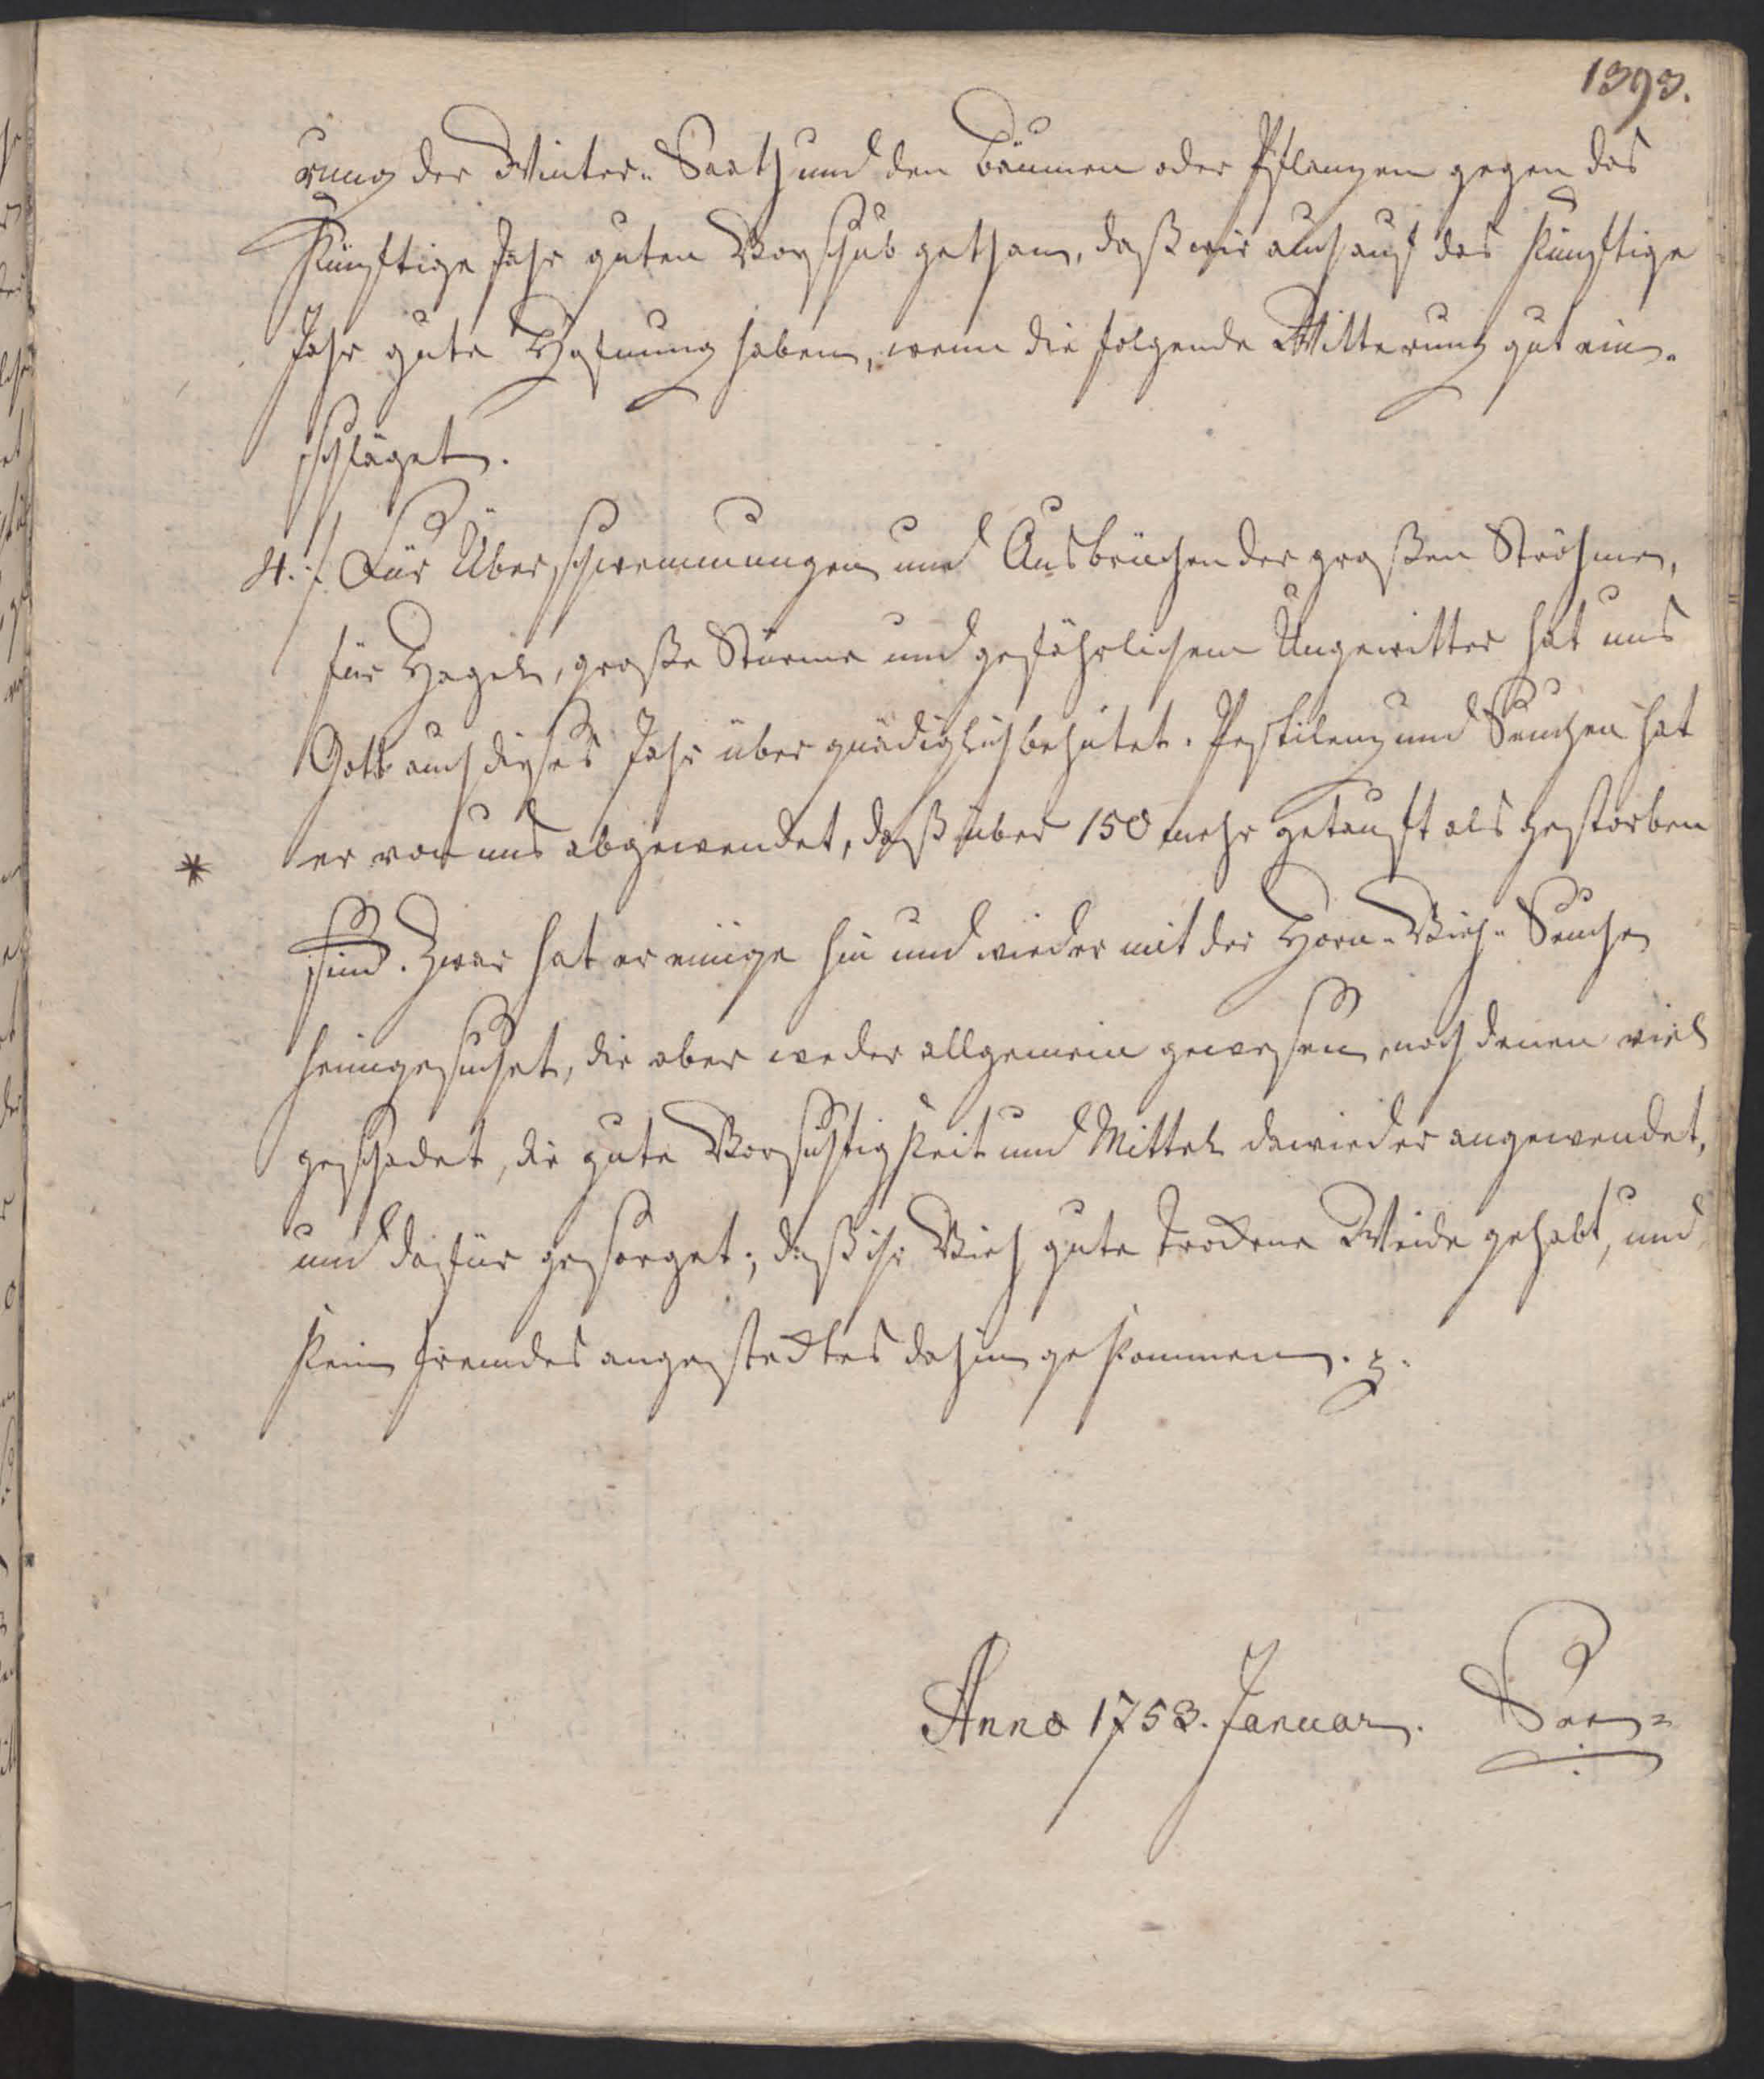 1393.
rung der Winter-Saat und den Bäumen oder Pflanzen gegen das
künftige Jahr guten Vorschub gethan, daß wir auch auf das künftige
Jahr gute Hofnung haben, wenn die folgende Witterung gut ein-
schläget.
4. Für Überschwemmungen und Ausbrüchen der großen Ströhme,
für Hagel, große Stürme und gefährlichem Ungewitter hat uns
Gott auch dieses Jahr über gnädiglich behütet. Pestilenz und Seuchen hat
* er von uns abgewendet, daß über 150 mehr getauft als gestorben
sind. Zwar hat er einige hin und wieder mit der Horn-Vieh-Seuche
heimgesuchet, die aber weder allgemein gewesen, noch denen viel
geschadet, die gute Vorsichtigkeit und Mittel dawieder angewendet,
und dafür gesorget; daß ihr Vieh gute trockene Weide gehabt, und
kein fremdes angestecktes dahin gekommen.
Anno 1753. Januar.